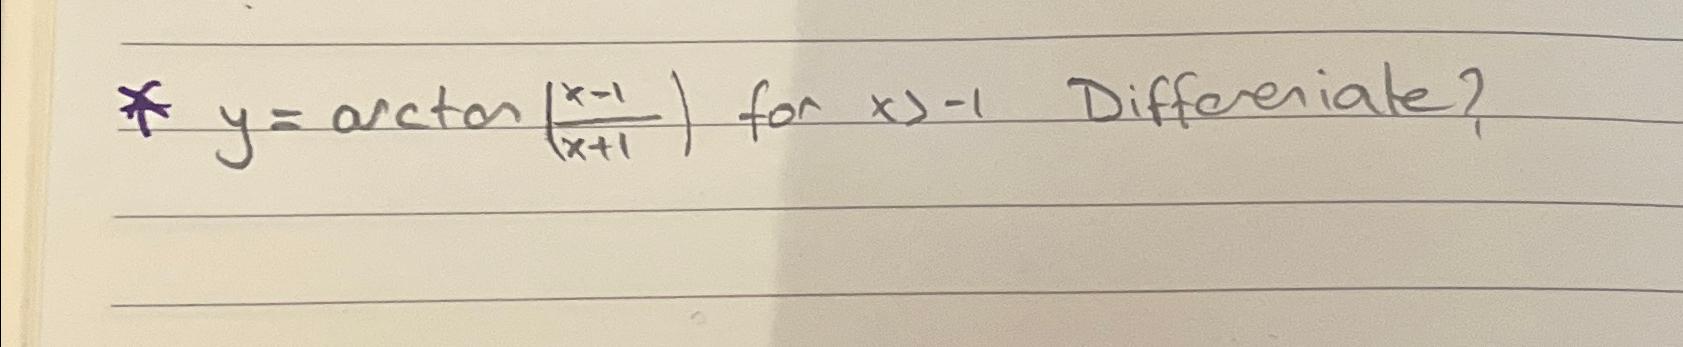 * y = arctan (x-1/x+1) for x > -1 Differeniate?